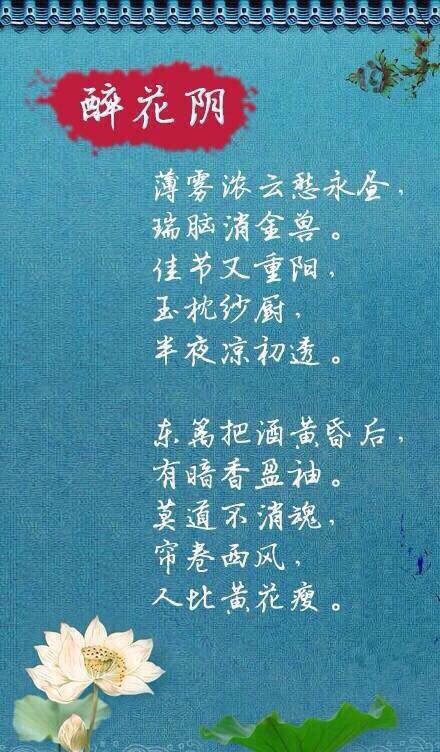 醉花阴
薄雾浓云愁永昼，
瑞脑消金兽。
佳节又重阳，
玉枕纱厨，
半夜凉初透。
东篱把酒黄昏后，
有暗香盈袖。
莫道不消魂，
帘卷西风，
人比黄花瘦。